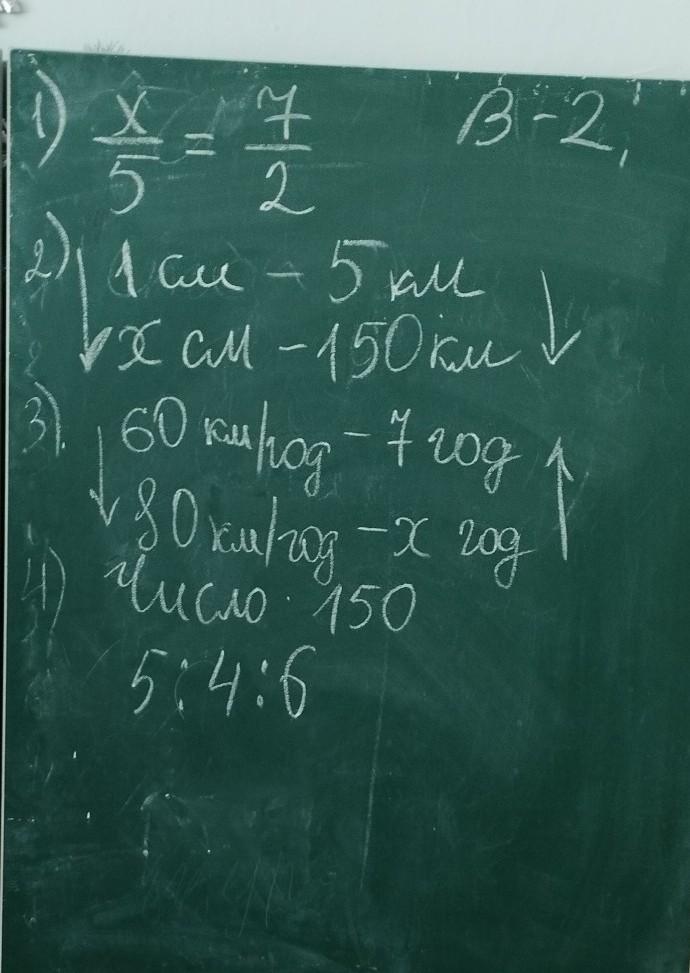 1) x/5 = 7/2 В-2,
2) ↓ 1 см - 5 км ↓
x см - 150 км
3). ↓ 60 км/год - 7 год ↑
80 км/год - x год
4) Число 150
5:4:6